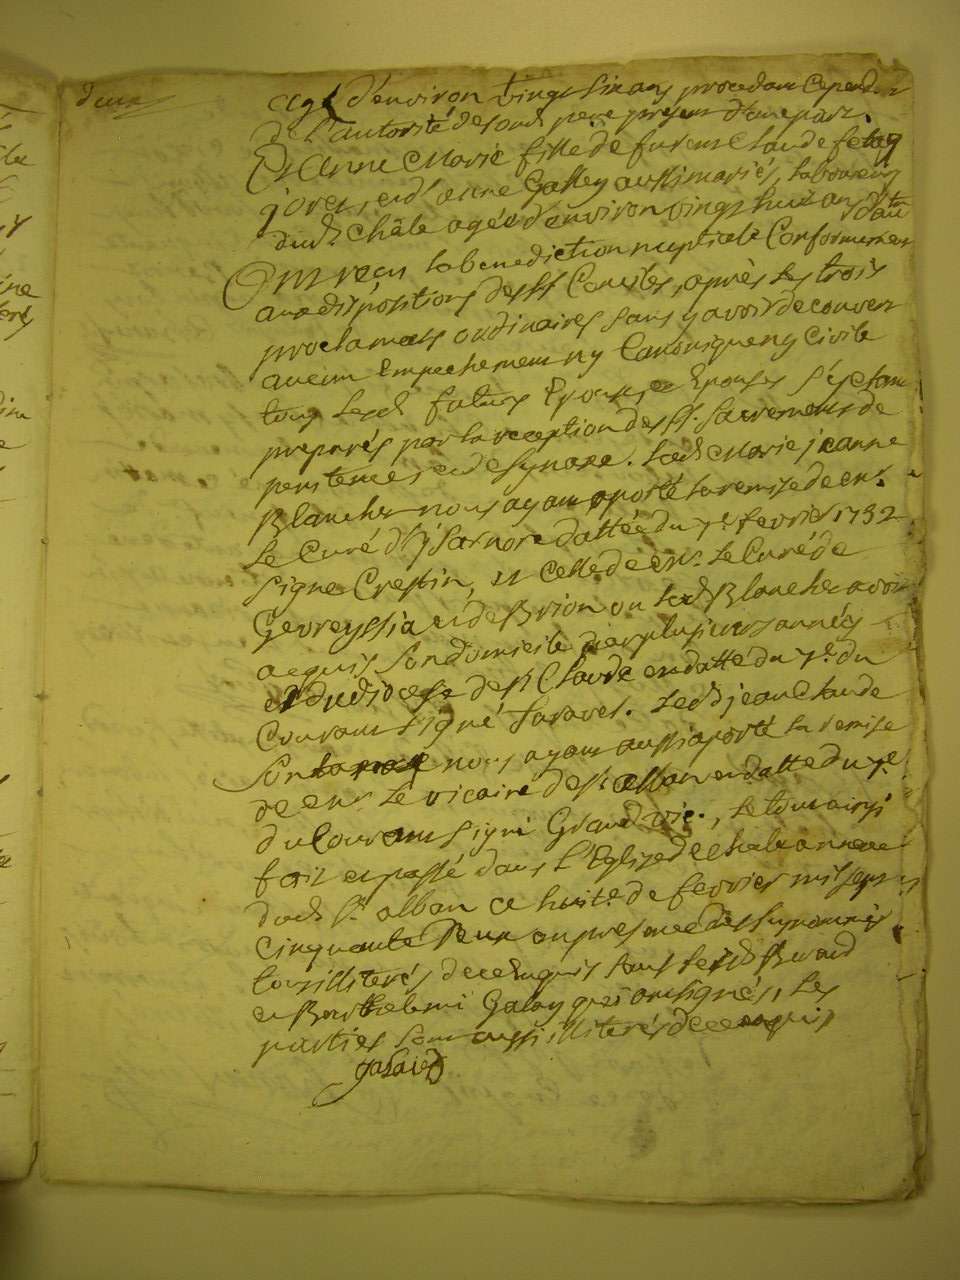 deux
agé d'environ vingt six ans procedant
de l'autorité de son d. pere present d'une part.
Et Anne Marie fille de furent Claude
et d'anne Gallay aussi mariés, laboureurs
dud. Châle agée d'environ vingt huit ans d'autre
Ont reçu la benediction nuptiale Conformement
aux dispositions des SS Conciles, après les trois
proclamats ordinaires sans y avoir decouvert
aucun Empechement ny Canonique ny Civile
tous lesd. futurs Epoux et Epouses s'étant
preparés par la reception des SS. Sacremens de
penitence et de Synaxe. lad. Marie jeanne
Blanchet nous ayant aporté la remise de mr.
le Curé d'ysarnore dattée du 7e. fevrier 1752
signé Crestin, et Celle de mr. le Curé de
Gevreyssia et de Brion ou lad. Blanchet avoit
acquis son domicile depuis plusieurs années
du diocese de St Claude en datte du 7e. du
Courant signé Taravel. led. jean Claude
nous ayant aussi aporté la remise
de mr le vicaire de St. alban en datte du 7e.
du Courant signé Grand vic., le tout ainsi
fait et passé dans l'Eglise de
dud. St. alban ce huit. de fevrier mil sept
Cinquante deux en presence des susnommés
tous illiterés de ce enquis sauf lesd. Berard
et Barthelemi Galay qui ont signés, les
parties sont aussi illiterés de ce enquis